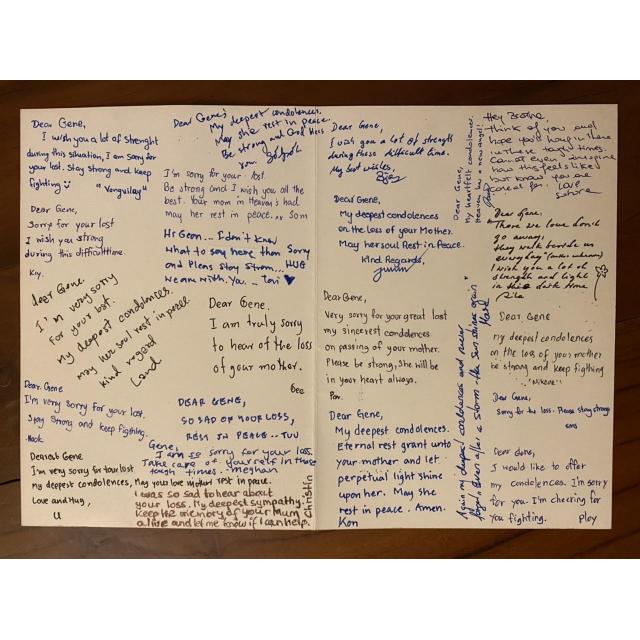 Dear Gene,
I wish you a lot of strenght
during this situation, I am sorry for
your lost. Stay strong and keep
fighting
"Yenguilay"
Dear Gene,
Sorry for your lost
I wish you strong
during this difficulttime.
Key.
Deer Gene.
I'm very sorry
For your lost.
My deepest condolences
may her soul rest in peace
kind regard
Land
Dear Gene
I'm very sorry for your lost.
Stay strong and keep fighting.
Mook
Dearest Gene
I'm very sorry for your lost
my deepest condolences, May your love mother rest in peace.
Love and Hug,
U
Dear Gene,
My deepest condolences.
May she rest in peace.
Be strong and God bless
you.
I'm sorry for your lost.
Be strong and I wish you all the
best. Your mom in Heaven's had
may her rest in peace... Som
Hi Geen... I don't know
what to say here than Sorry
and Pleas stay Strom... HUG
We am with You... Tori
Dear Gene.
I am truly sorry
to hear of the loss
of your mother.
Gee
DEAR GENE,
SO SAD OF YOUR LOSS,
REST IN PEACE -- TUU
Gene,
I am so sorry for your loss.
Take care of yourself in these
tough times. - meghan
I was so sad to hear about
your loss. My deepest sympathy.
Keep the memory of your Mum
alive and let me know if I can help.
Christin
Dear Gene,
I wish you a lot of strength
during these difficult time.
My best wishes,
Dear Gene,
My deepest condolences
on the loss of your Mother.
May her soul Rest in Peace.
Kind Regards,
Dear Gene,
Very sorry for your great lost
my sincerest condolences
on passing of your mother.
Please be strong, She will be
in your heart always.
Por.
Dear Gene,
My deepest condolences.
Eternal rest grant unto
your mother and let
perpetual light shine
upon her. May she
rest in peace. Amen.
Kon
Dear Gene,
My heartfelt condolences.
Heaven has a new angel!
Hey
Think of you and
hope you'd hang in there
in these tough times.
Cannot even imagine
how this feels like
but know you are
cared for. Love
Dear Gene,
"There we love don't
go away,
they walk beside us
everyday" (author unknown)
I wish you a lot of
strength and light
in this dark time
Again my deepest condolences and never
forget "Even after a storm - the sun shines again"
Mark
Dear Gene
my deepest condolences
on the loss of your mother
be strong and keep fighting
"Nikene"
Dear Gene,
Sorry for the loss. Please stay strong
Dear Gene,
I would like to offer
my condolences. I'm sorry
for you. I'm cheering for
you fighting. Ploy